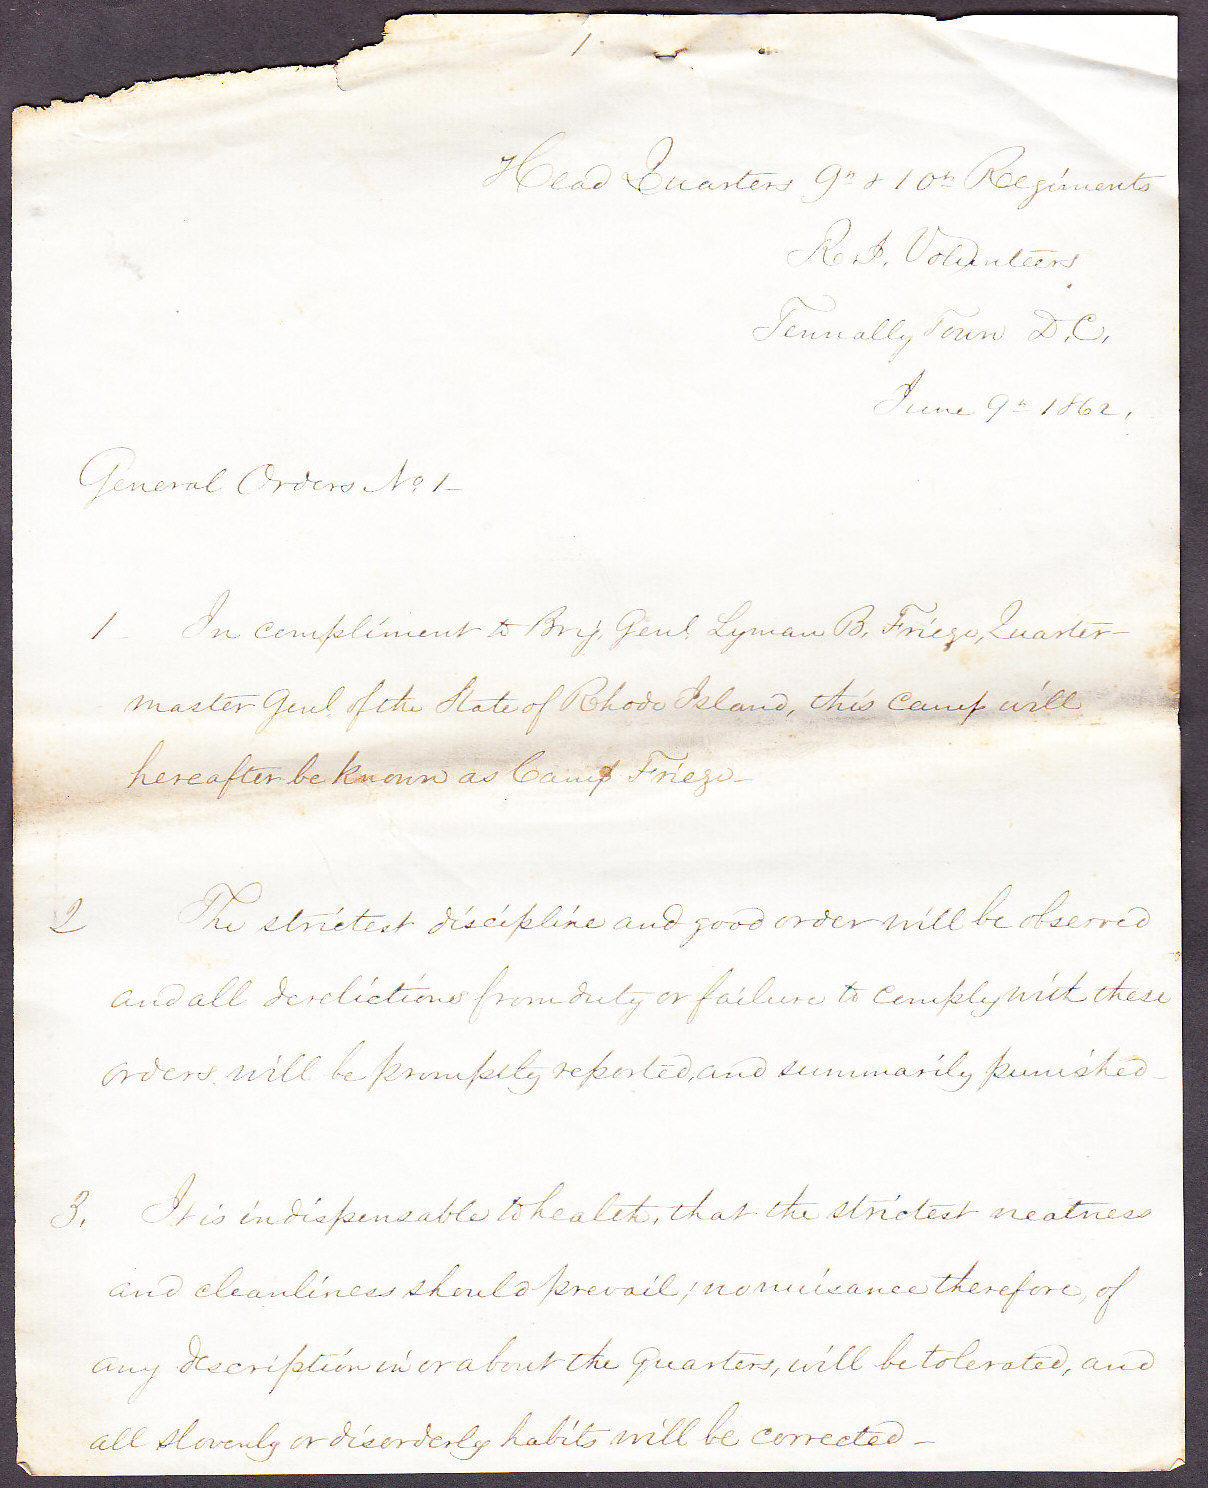 1.
Head Quarters 9th & 10th Regiments
R.I. Volunteers
Tennally Town D.C.
June 9th 1862.
General Orders No. 1 -
1 - In compliment to Brig. Genl. Lyman B. Frieze, Quarter-
master Genl. of the State of Rhode Island, this camp will
hereafter be known as Camp Frieze -
2 The strictest discipline and good order will be observed
and all derelictions from duty or failure to comply with these
orders, will be promptly reported, and summarily punished -
3. It is indispensable to health, that the strictest neatness
and cleanliness should prevail; no nuisance therefore, of
any description in or about the quarters, will be tolerated, and
all slovenly or disorderly habits will be corrected -